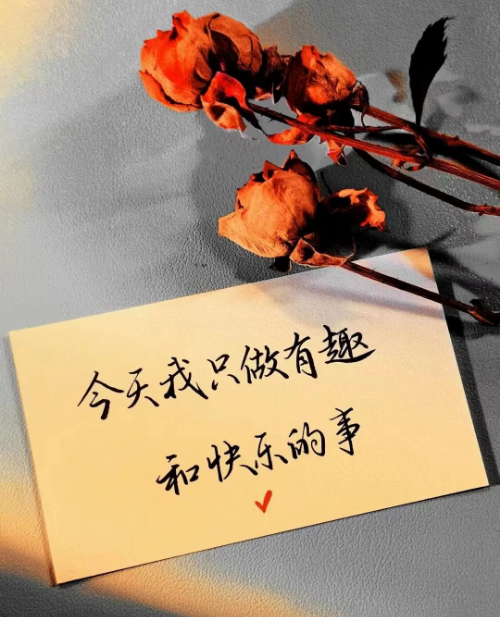 今天我只做有趣
和快乐的事